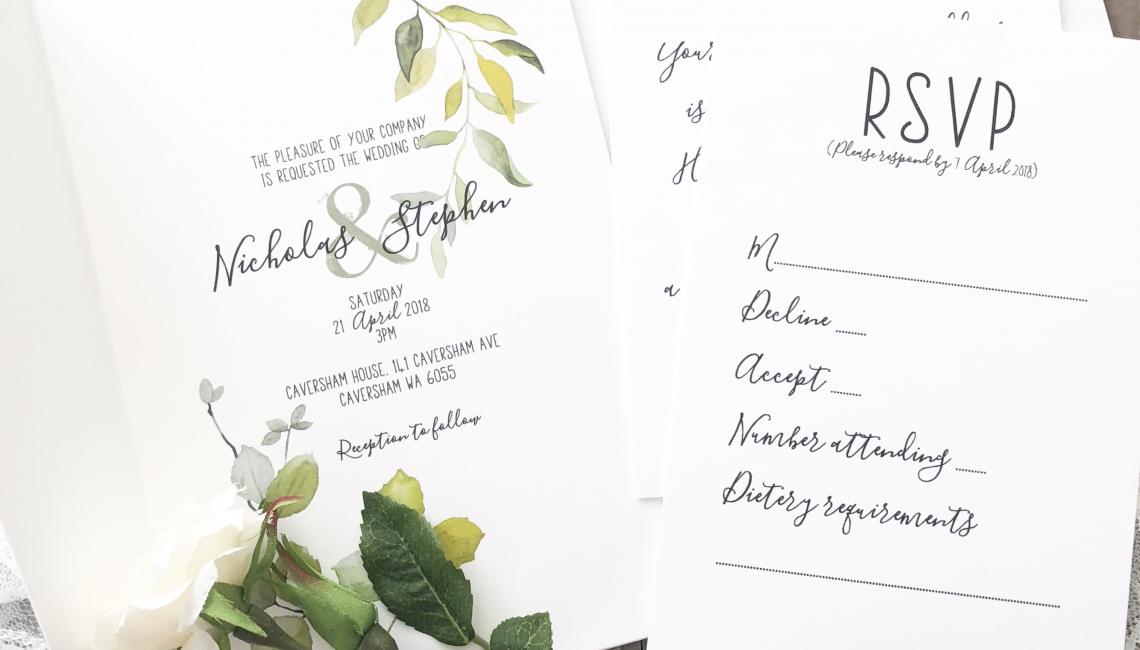 THE PLEASURE OF YOUR COMPANY
IS REQUESTED THE WEDDING OF
Nicholas & Stephen
SATURDAY
21 April 2018
3PM
CAVERSHAM HOUSE, 141 CAVERSHAM AVE
CAVERSHAM WA 6055
Reception to follow
Your
is
H
a
RSVP
(Please respond by 7 April 2018)
M
Decline
Accept
Number attending
Dietery requirements